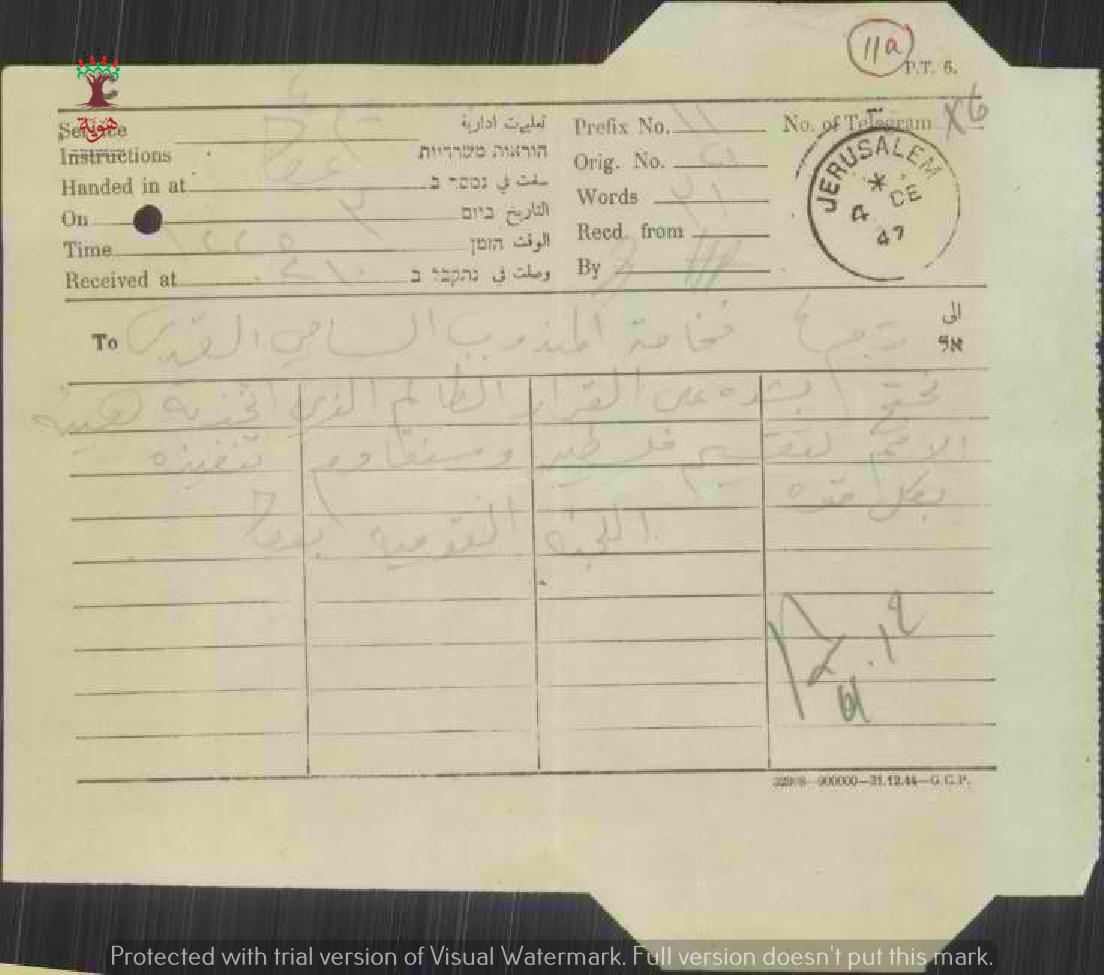 11a
P.T. 6.
هوية
Service تعليمات ادارية
Instructions הוראות משרדיות
Handed in at سلمت في נמסר ב
On التاريخ ביום
Time الوقت הזמן
Received at وصلت في נתקבל ב
Prefix No. 11
Orig. No.
Words ٢١
Recd. from
By
No. of Telegram X6
JERUSALEM
4 DE
47
To فخامة المندوب السامي القدس الى אל
نحتج بشده على القرار الظالم الذي اتخذته هيئة
الامم لتقسيم فلسطين وسنقاوم تنفيذه
بكل قوه
اللجنة القومية
32908—900000—31.12.44—G.C.P.
Protected with trial version of Visual Watermark. Full version doesn't put this mark.